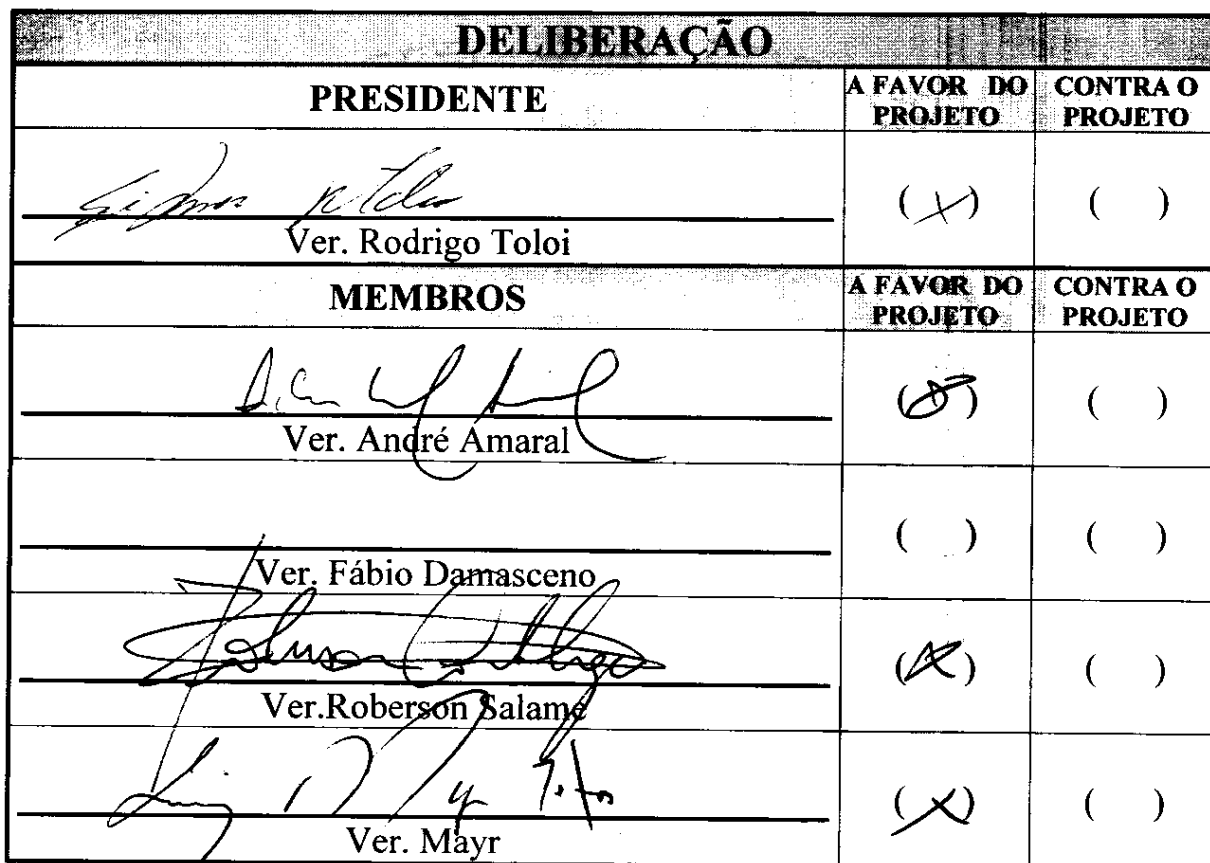 DELIBERAÇÃO
PRESIDENTE A FAVOR DO PROJETO CONTRA O PROJETO
(X) ( )
Ver. Rodrigo Toloi
MEMBROS A FAVOR DO PROJETO CONTRA O PROJETO
(X) ( )
Ver. André Amaral
( ) ( )
Ver. Fábio Damasceno
(X) ( )
Ver.Roberson Salame
(X) ( )
Ver. Mayr